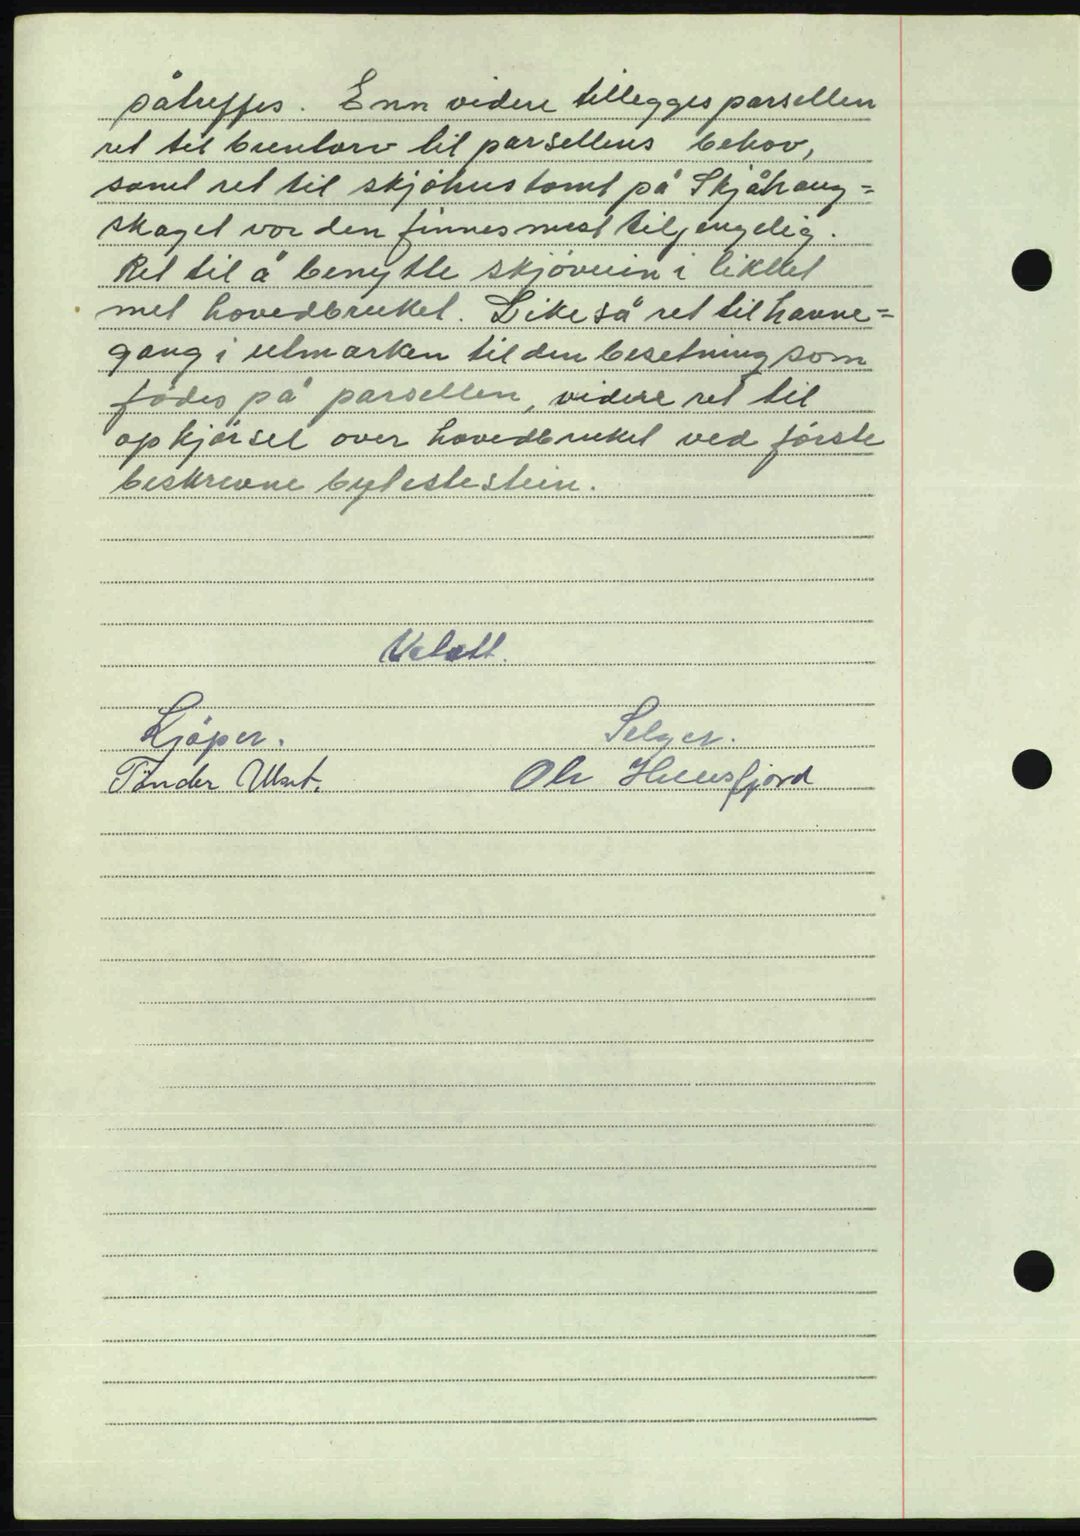 påtreffes. Enn videre tillegges parsellen
ret til brentorv til parsellens behov,
samt ret til skjöhustomt på Skjåhaug=
skaget vor den finnes mest tilgengelig.
Ret til å benytte skjöveien i likhet
met hovedbruket. Like så ret til havne=
gang i utmarken til den besetning som
födes på parsellen, videre ret til
opkjörsel over hovedbruket ved förste
beskrevne bytestestein.
Vetatt.
Kjöper. Selger.
Tönder Ulset. Ole Huusfjord